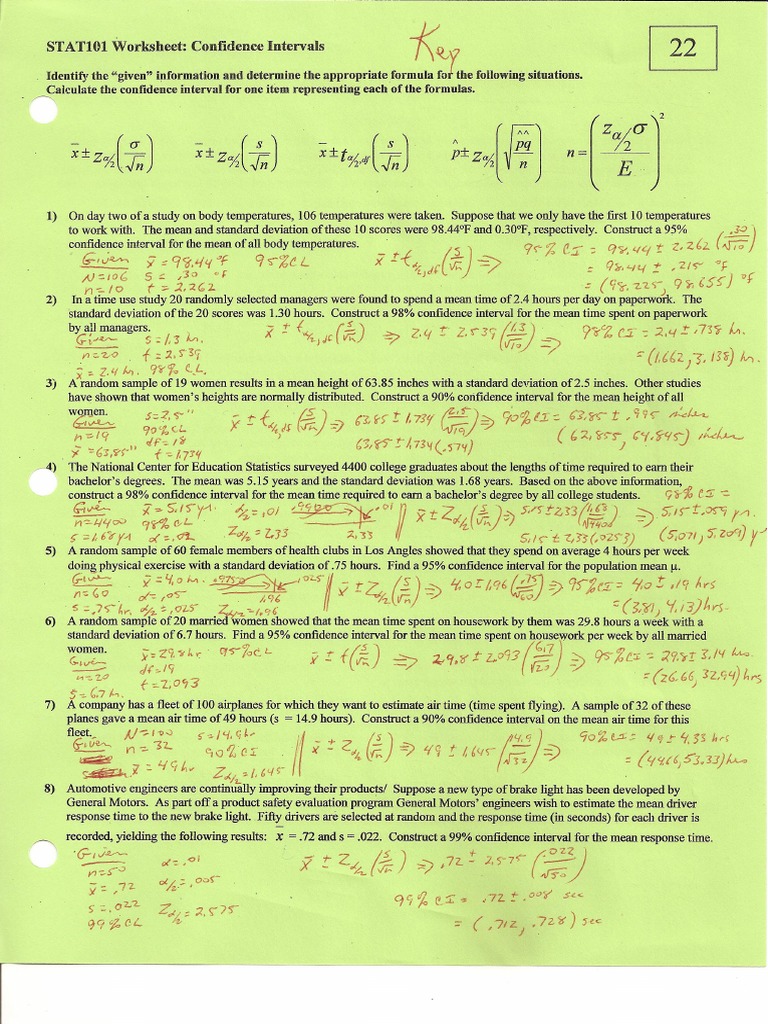 STAT101 Worksheet: Confidence Intervals
Key
22
Identify the "given" information and determine the appropriate formula for the following situations.
Calculate the confidence interval for one item representing each of the formulas.
x̄ ± z α/2 (σ/√n) x̄ ± z α/2 (s/√n) x̄ ± t α/2,df (s/√n) p̂ ± z α/2 (√(p̂q̂/n)) n = (z α/2 σ / E)²
1) On day two of a study on body temperatures, 106 temperatures were taken. Suppose that we only have the first 10 temperatures
to work with. The mean and standard deviation of these 10 scores were 98.44ºF and 0.30ºF, respectively. Construct a 95%
confidence interval for the mean of all body temperatures.
Given x̄ = 98.44 °F 95% CL x̄ ± t α/2, df (s/√n) ⇒ 95% CI = 98.44 ± 2.262 (.30/√10)
N=106 s = .30 °F = 98.44 ± .215 °F
n=10 t = 2.262 = (98.225, 98.655) °F
2) In a time use study 20 randomly selected managers were found to spend a mean time of 2.4 hours per day on paperwork. The
standard deviation of the 20 scores was 1.30 hours. Construct a 98% confidence interval for the mean time spent on paperwork
by all managers.
Given s = 1.3 hr. x̄ ± t α/2, df (s/√n) ⇒ 2.4 ± 2.539 (1.3/√10) ⇒ 98% CI = 2.4 ± .738 hr.
n=20 t = 2.539 = (1.662, 3.138) hr.
x̄ = 2.4 hr. 98% C.L.
3) A random sample of 19 women results in a mean height of 63.85 inches with a standard deviation of 2.5 inches. Other studies
have shown that women's heights are normally distributed. Construct a 90% confidence interval for the mean height of all
women.
Given s=2.5" x̄ ± t α/2, df (s/√n) ⇒ 63.85 ± 1.734 (2.5/√19) ⇒ 90% CI = 63.85 ± .995 inches
n=19 90% CL
x̄ = 63.85" df = 18 t = 1.734 63.85 ± 1.734 (.574) (62.855, 64.845) inches
4) The National Center for Education Statistics surveyed 4400 college graduates about the lengths of time required to earn their
bachelor's degrees. The mean was 5.15 years and the standard deviation was 1.68 years. Based on the above information,
construct a 98% confidence interval for the mean time required to earn a bachelor's degree by all college students.
98% CI =
Given x̄ = 5.15 yr. α/2 = .01 .9900 .01 x̄ ± Z α/2 (s/√n) ⇒ 5.15 ± 2.33 (1.68/√4400) ⇒ 5.15 ± .059 yr.
n=4400 98% CL
s = 1.68 yr α = .02 Z α/2 = 2.33 2.33 5.15 ± 2.33 (.0253) (5.091, 5.209) yr
5) A random sample of 60 female members of health clubs in Los Angles showed that they spend on average 4 hours per week
doing physical exercise with a standard deviation of .75 hours. Find a 95% confidence interval for the population mean μ.
Given x̄ = 4.0 hr. .9750 .025 x̄ ± Z α/2 (s/√n) ⇒ 4.0 ± 1.96 (.75/√60) ⇒ 95% CI = 4.0 ± .19 hrs
n=60 α = .05 1.96
s = .75 hr. α/2 = .025 Z α/2 = 1.96 = (3.81, 4.13) hrs.
6) A random sample of 20 married women showed that the mean time spent on housework by them was 29.8 hours a week with a
standard deviation of 6.7 hours. Find a 95% confidence interval for the mean time spent on housework per week by all married
women.
Given x̄ = 29.8 hr 95% CL x̄ ± t (s/√n) ⇒ 29.8 ± 2.093 (6.7/√20) ⇒ 95% CI = 29.8 ± 3.14 hrs.
n=20 df = 19 = (26.66, 32.94) hrs
s = 6.7 hr. t = 2.093
7) A company has a fleet of 100 airplanes for which they want to estimate air time (time spent flying). A sample of 32 of these
planes gave a mean air time of 49 hours (s = 14.9 hours). Construct a 90% confidence interval on the mean air time for this
fleet.
Given N=100 s = 14.9 hr x̄ ± Z α/2 (s/√n) ⇒ 49 ± 1.645 (14.9/√32) ⇒ 90% CI = 49 ± 4.33 hrs
n = 32 90% CI
x̄ = 49 hr Z α/2 = 1.645 = (44.66, 53.33) hrs
8) Automotive engineers are continually improving their products/ Suppose a new type of brake light has been developed by
General Motors. As part off a product safety evaluation program General Motors' engineers wish to estimate the mean driver
response time to the new brake light. Fifty drivers are selected at random and the response time (in seconds) for each driver is
recorded, yielding the following results: x̄ = .72 and s = .022. Construct a 99% confidence interval for the mean response time.
Given α = .01 x̄ ± Z α/2 (s/√n) ⇒ .72 ± 2.575 (.022/√50)
n=50
x̄ = .72 α/2 = .005
s = .022 Z α/2 = 2.575 99% CI = .72 ± .008 sec
99% CL = (.712, .728) sec